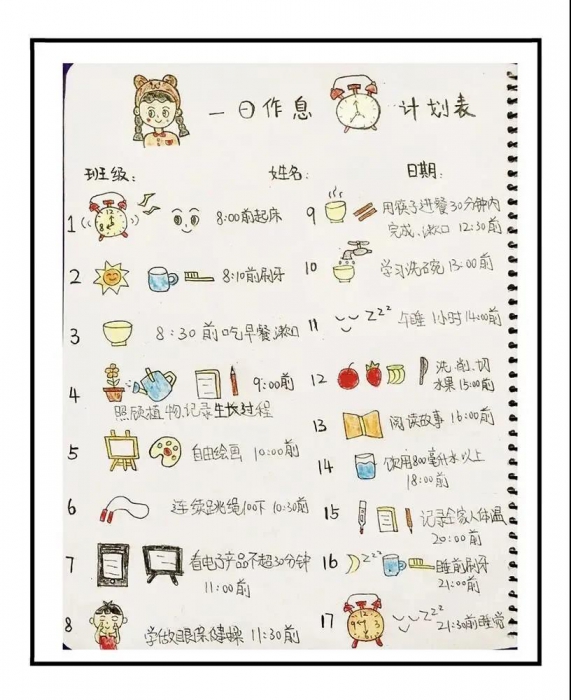 一日作息 计划表
班级: 姓名: 日期:
1 8:00前起床
2 8:10前刷牙
3 8:30前吃早餐漱口
4 9:00前
照顾植物,记录生长过程
5 自由绘画 10:00前
6 连续跳绳100下 10:30前
7 看电子产品不超30分钟
11:00前
8 学做眼保健操 11:30前
9 用筷子进餐30分钟内
完成、漱口 12:30前
10 学习洗碗 13:00前
11 zzz 午睡 1小时 14:00前
12 洗、削、切
水果 15:00前
13 阅读故事 16:00前
14 饮用800毫升水以上
18:00前
15 记录全家人体温
20:00前
16 zzz 睡前刷牙
21:00前
17 zzz
21:30前睡觉